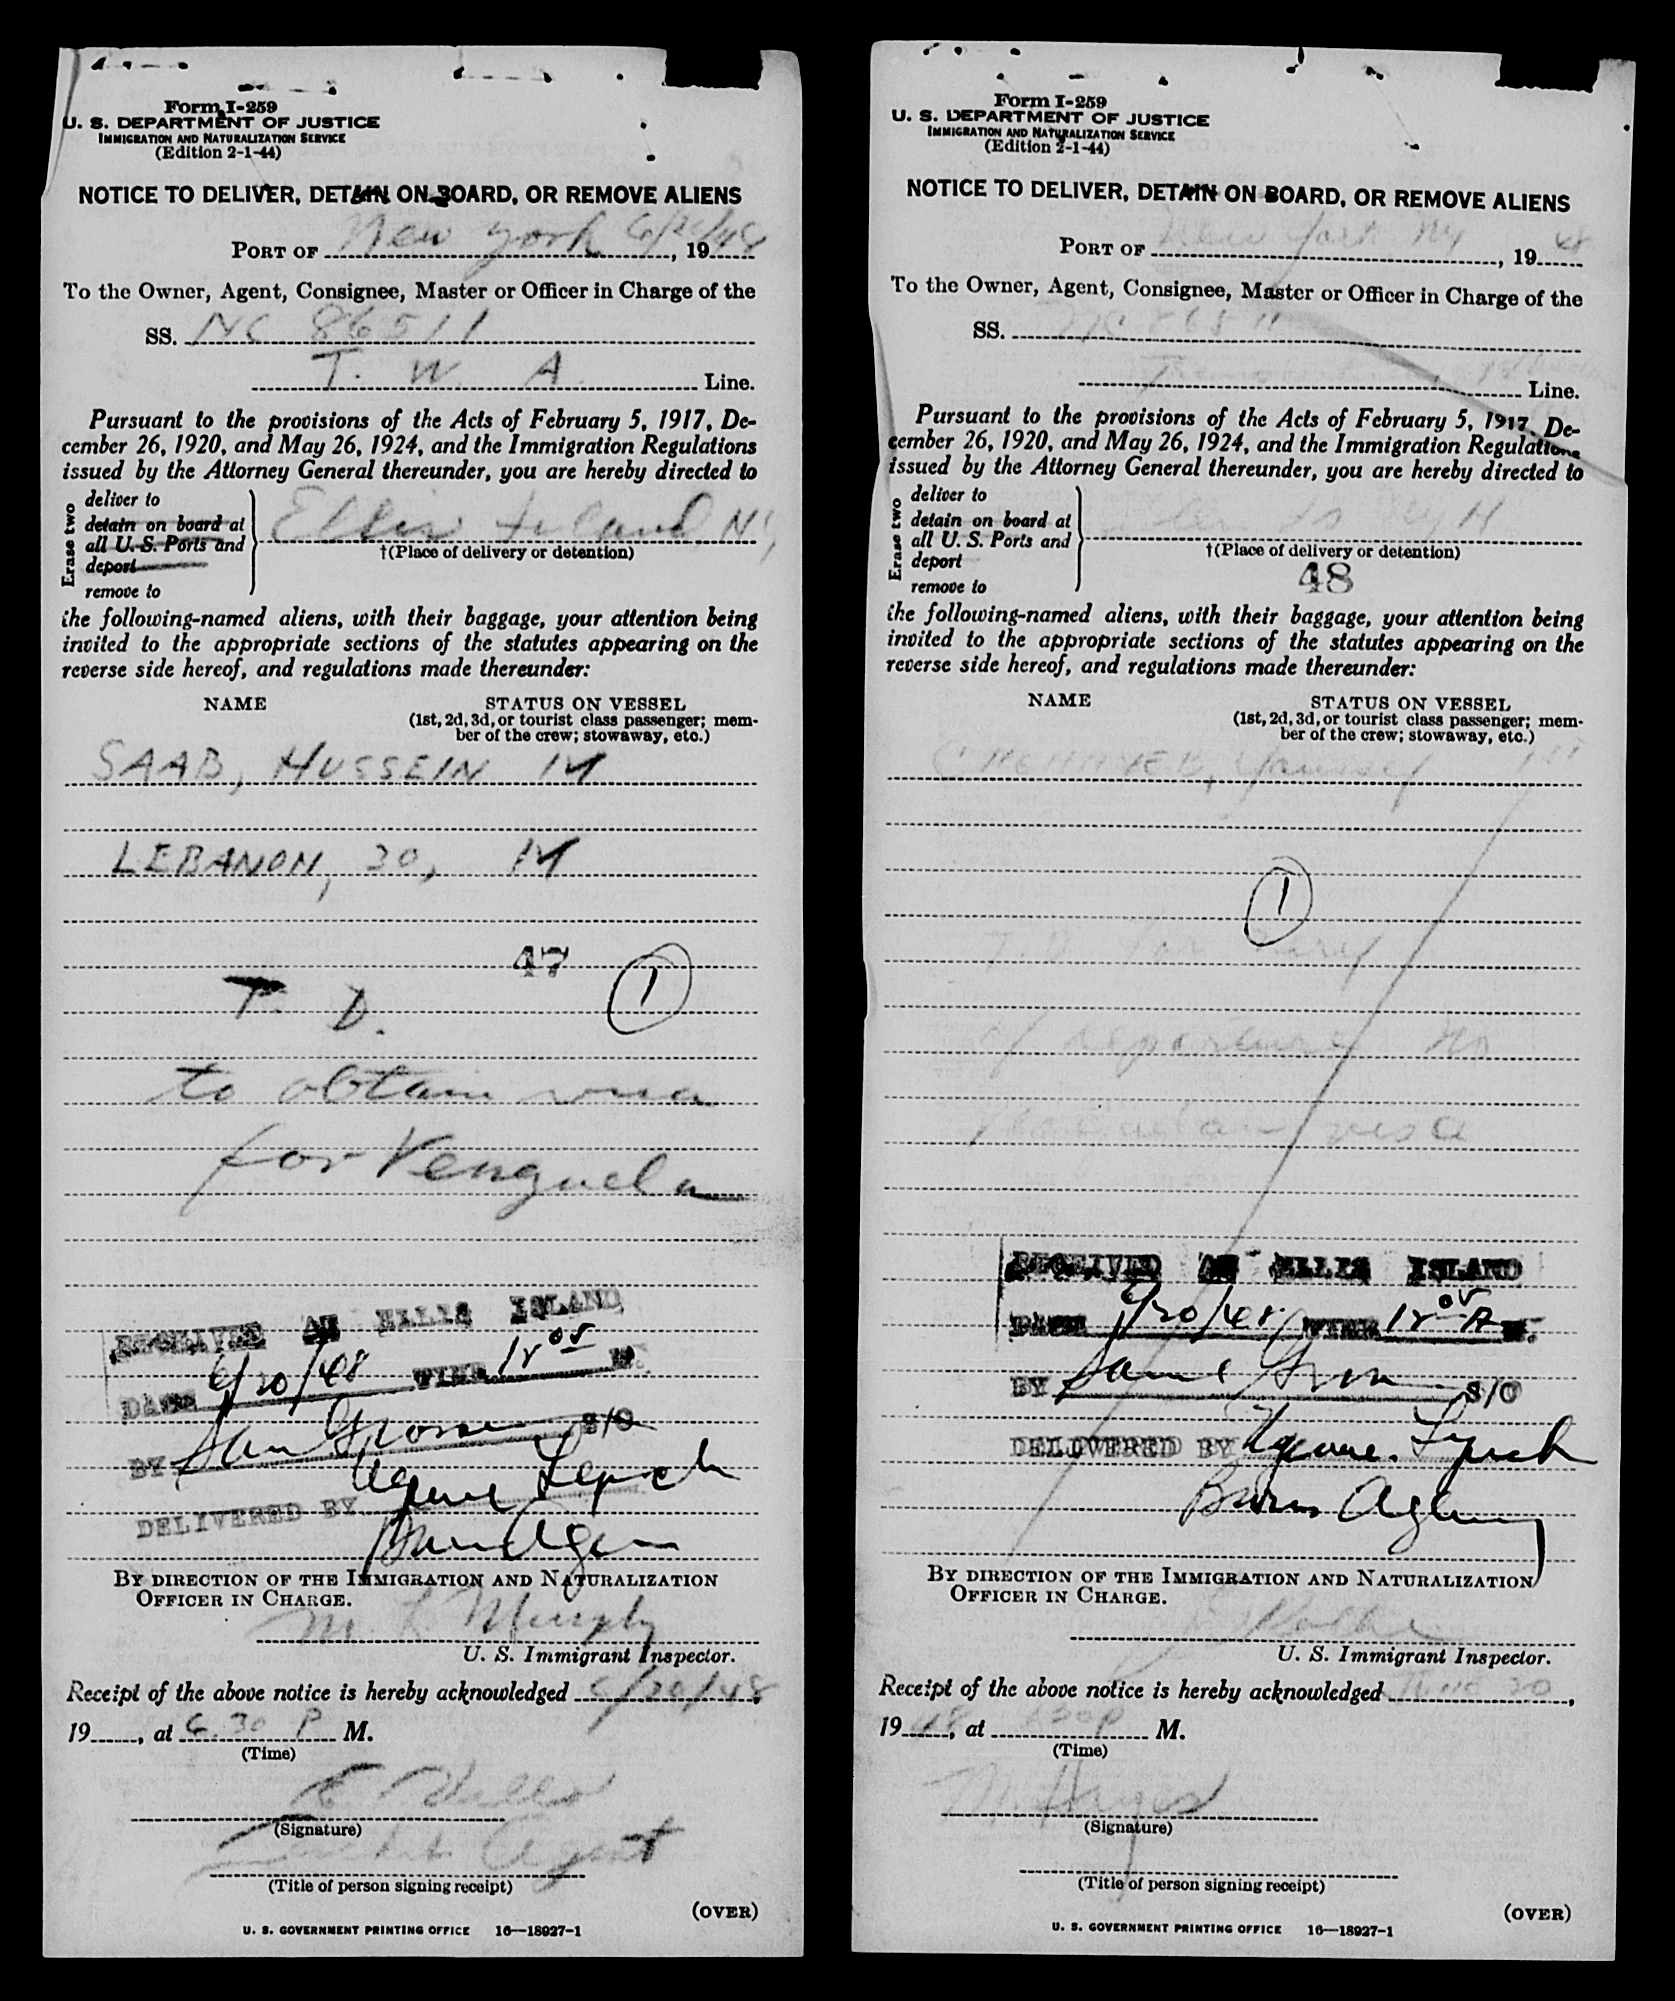 Form I-259
U. S. DEPARTMENT OF JUSTICE
IMMIGRATION AND NATURALIZATION SERVICE
(Edition 2-1-44)
NOTICE TO DELIVER, DETAIN ON BOARD, OR REMOVE ALIENS
PORT OF New York 6/20/48, 19
To the Owner, Agent, Consignee, Master or Officer in Charge of the
SS. NC 86511
T. W. A. Line.
Pursuant to the provisions of the Acts of February 5, 1917, De-
cember 26, 1920, and May 26, 1924, and the Immigration Regulations
issued by the Attorney General thereunder, you are hereby directed to
Erase two
deliver to
detain on board at
all U. S. Ports and
deport
remove to
Ellis Island, NY
†(Place of delivery or detention)
the following-named aliens, with their baggage, your attention being
invited to the appropriate sections of the statutes appearing on the
reverse side hereof, and regulations made thereunder:
NAME STATUS ON VESSEL
(1st, 2d, 3d, or tourist class passenger; mem-
ber of the crew; stowaway, etc.)
SAAB, HUSSEIN M
LEBANON, 30, M
47
1
T. D.
to obtain visa
for Venezuela
RECEIVED AT ELLIS ISLAND
DATE 6/20/48 TIME 12 05 M.
BY Sam S/O
DELIVERED BY Eugene Lynch
BY DIRECTION OF THE IMMIGRATION AND NATURALIZATION
OFFICER IN CHARGE.
M. L. Murphy
U. S. Immigrant Inspector.
Receipt of the above notice is hereby acknowledged 6/20/48,
19, at 6.30 P M.
(Time)
(Signature)
Agent
(Title of person signing receipt)
(OVER)
U. S. GOVERNMENT PRINTING OFFICE 16—18927-1
Form I-259
U. S. DEPARTMENT OF JUSTICE
IMMIGRATION AND NATURALIZATION SERVICE
(Edition 2-1-44)
NOTICE TO DELIVER, DETAIN ON BOARD, OR REMOVE ALIENS
PORT OF New York NY, 19 48
To the Owner, Agent, Consignee, Master or Officer in Charge of the
SS. NC 86511
Line.
Pursuant to the provisions of the Acts of February 5, 1917, De-
cember 26, 1920, and May 26, 1924, and the Immigration Regulations
issued by the Attorney General thereunder, you are hereby directed to
Erase two
deliver to
detain on board at
all U. S. Ports and
deport
remove to
†(Place of delivery or detention)
48
the following-named aliens, with their baggage, your attention being
invited to the appropriate sections of the statutes appearing on the
reverse side hereof, and regulations made thereunder:
NAME STATUS ON VESSEL
(1st, 2d, 3d, or tourist class passenger; mem-
ber of the crew; stowaway, etc.)
1
T. D. for
of departure no
Venezuelan visa
RECEIVED AT ELLIS ISLAND
DATE 6/20/48 TIME 12 05 A M.
BY Sam S/O
DELIVERED BY Eugene Lynch
BY DIRECTION OF THE IMMIGRATION AND NATURALIZATION
OFFICER IN CHARGE.
U. S. Immigrant Inspector.
Receipt of the above notice is hereby acknowledged June 20,
19 48, at M.
(Time)
(Signature)
(Title of person signing receipt)
(OVER)
U. S. GOVERNMENT PRINTING OFFICE 16—18927-1